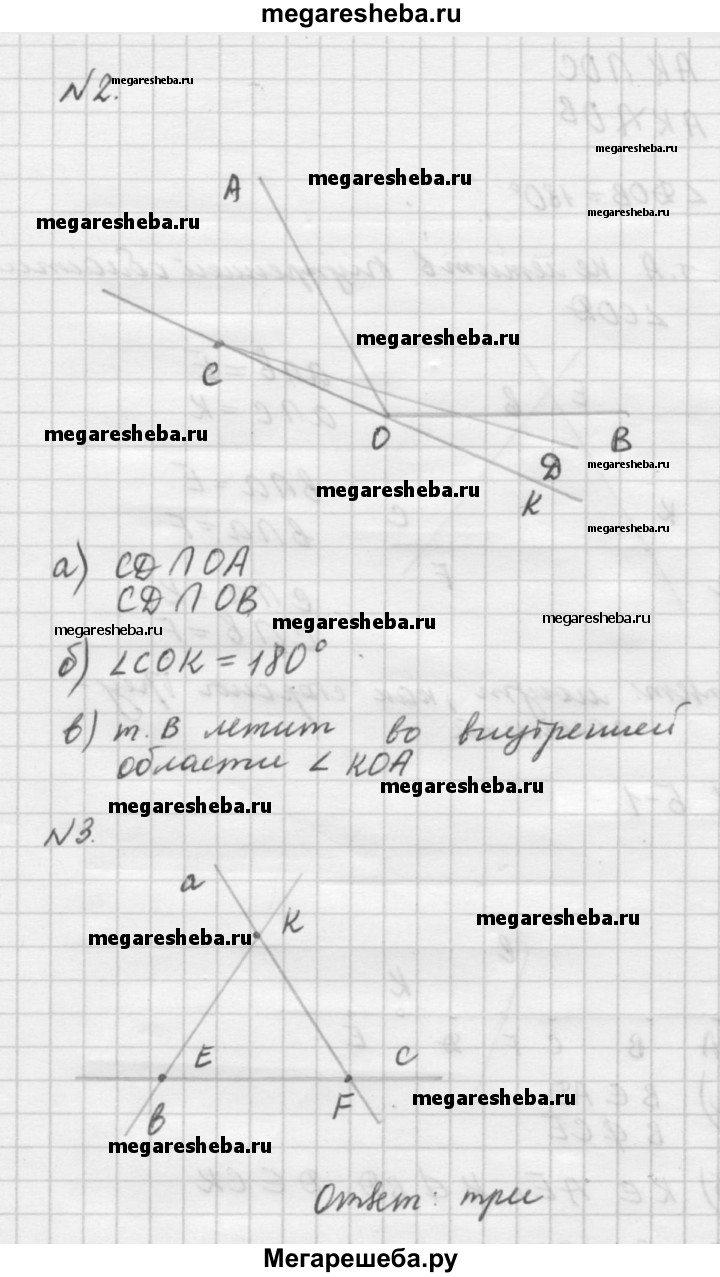 megaresheba.ru
N2.
megaresheba.ru
megaresheba.ru
A
megaresheba.ru
megaresheba.ru
megaresheba.ru
megaresheba.ru
C
O
B
megaresheba.ru
D
megaresheba.ru
megaresheba.ru
K
megaresheba.ru
а) CD ∩ OA
CD ∩ OB
megaresheba.ru
megaresheba.ru
megaresheba.ru
б) ∠COK = 180°
в) т. B лежит во внутренней
области ∠ KOA
megaresheba.ru
megaresheba.ru
N3.
a
K
megaresheba.ru
megaresheba.ru
E
C
B
F
megaresheba.ru
megaresheba.ru
Ответ: три
Мегарешеба.ру